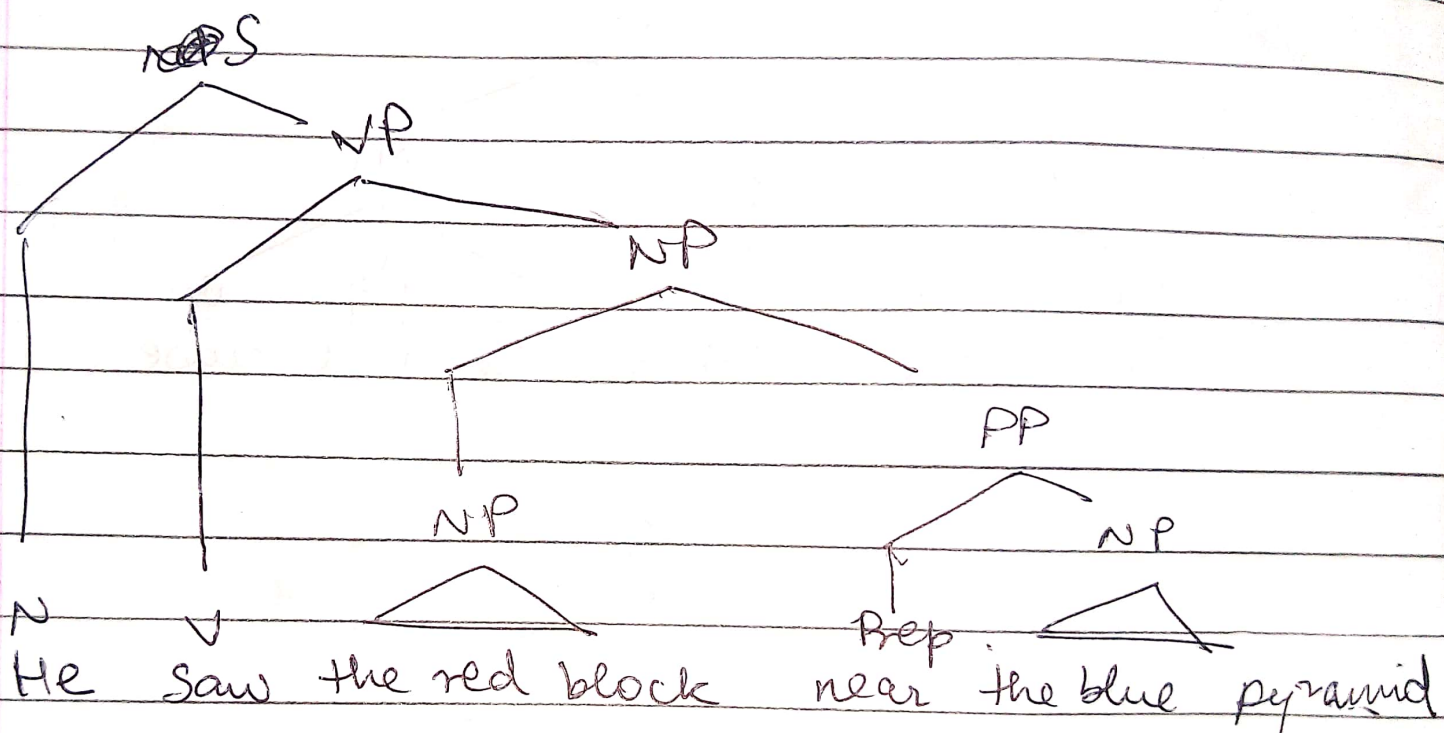 S
NP
NP
PP
NP NP
N V Prep
He saw the red block near the blue pyramid